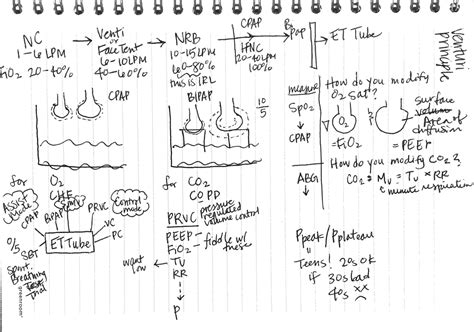 NC → Venti or Face Tent → NRB → CPAP HNC 20-40L 100% → Bipap → ET Tube
1-6 LPM
6-10LPM
10-15LPM
FiO2 20-40%
40-60%
60-80%
this is IRL
venturi principle
CPAP
BIPAP
10/5
measure
SpO2
↓
CPAP
ABG →
How do you modify O2 Sat?
O2
= FiO2
surface
volume
Area of diffusion
= PEEP
How do you modify CO2?
CO2 = Mv = TV x RR
minute respiration
for O2
CHF
for CO2
COPD
Assist Mode
CPAP
BiPAP
SIMV
PRVC
Control mode
VC
PC
ET Tube
0/5
SBT
Spont. Breathing
Trial
PRVC pressure regulated volume control
PEEP
FiO2 - fiddle w/ these
want low → TV
RR
↓
P
Ppeak / Pplateau
↓
Teens! 20s ok
if 30s bad
40s xx